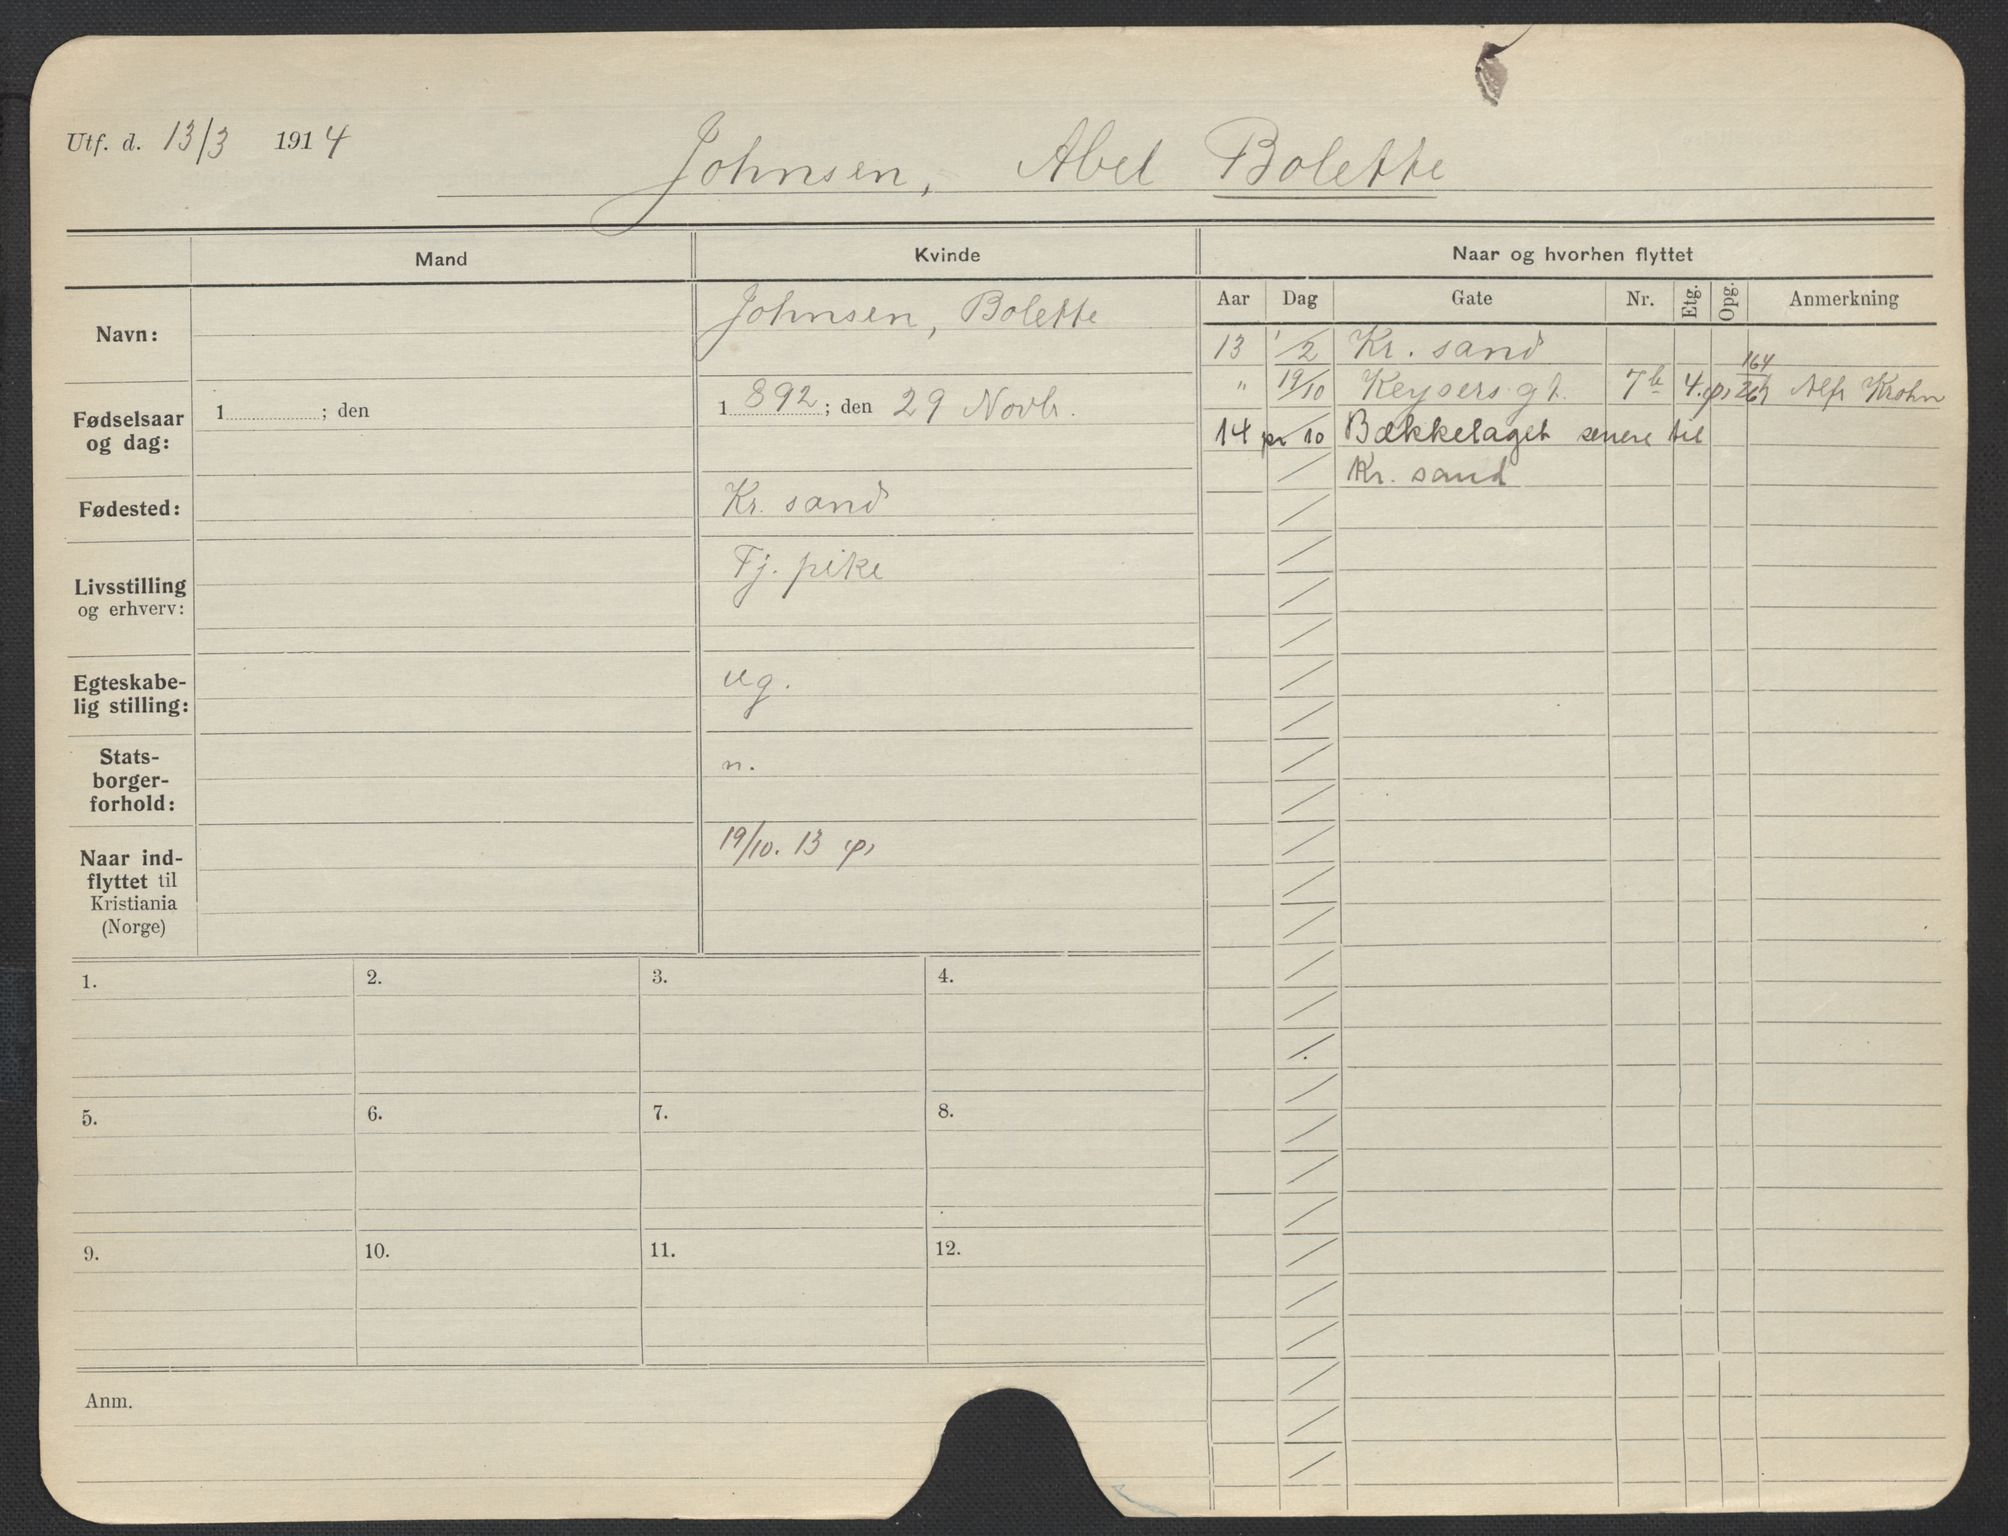 Utf. d. 13/3 1914
Johnsen, Abel Bolette
Mand
Kvinde
Naar og hvorhen flyttet
Aar Dag Gate Nr. Etg. Opg. Anmerkning
Navn:
Johnsen, Bolette
Fødselsaar
og dag:
1 ; den
1892; den 29 Novbr.
Fødested:
Kr. sand
Livsstilling
og erhverv:
Tj. pike
Egteskabe-
lig stilling:
ug.
Stats-
borger-
forhold:
n.
Naar ind-
flyttet til
Kristiania
(Norge)
19/10. 13
13 1/2 Kr. sand
164
" 19/10 Keysers gt. 7b 4. Alfr Krohn
14 pr 10 Bækkelaget senere til
Kr. sand
1. 2. 3. 4.
5. 6. 7. 8.
9. 10. 11. 12.
Anm.